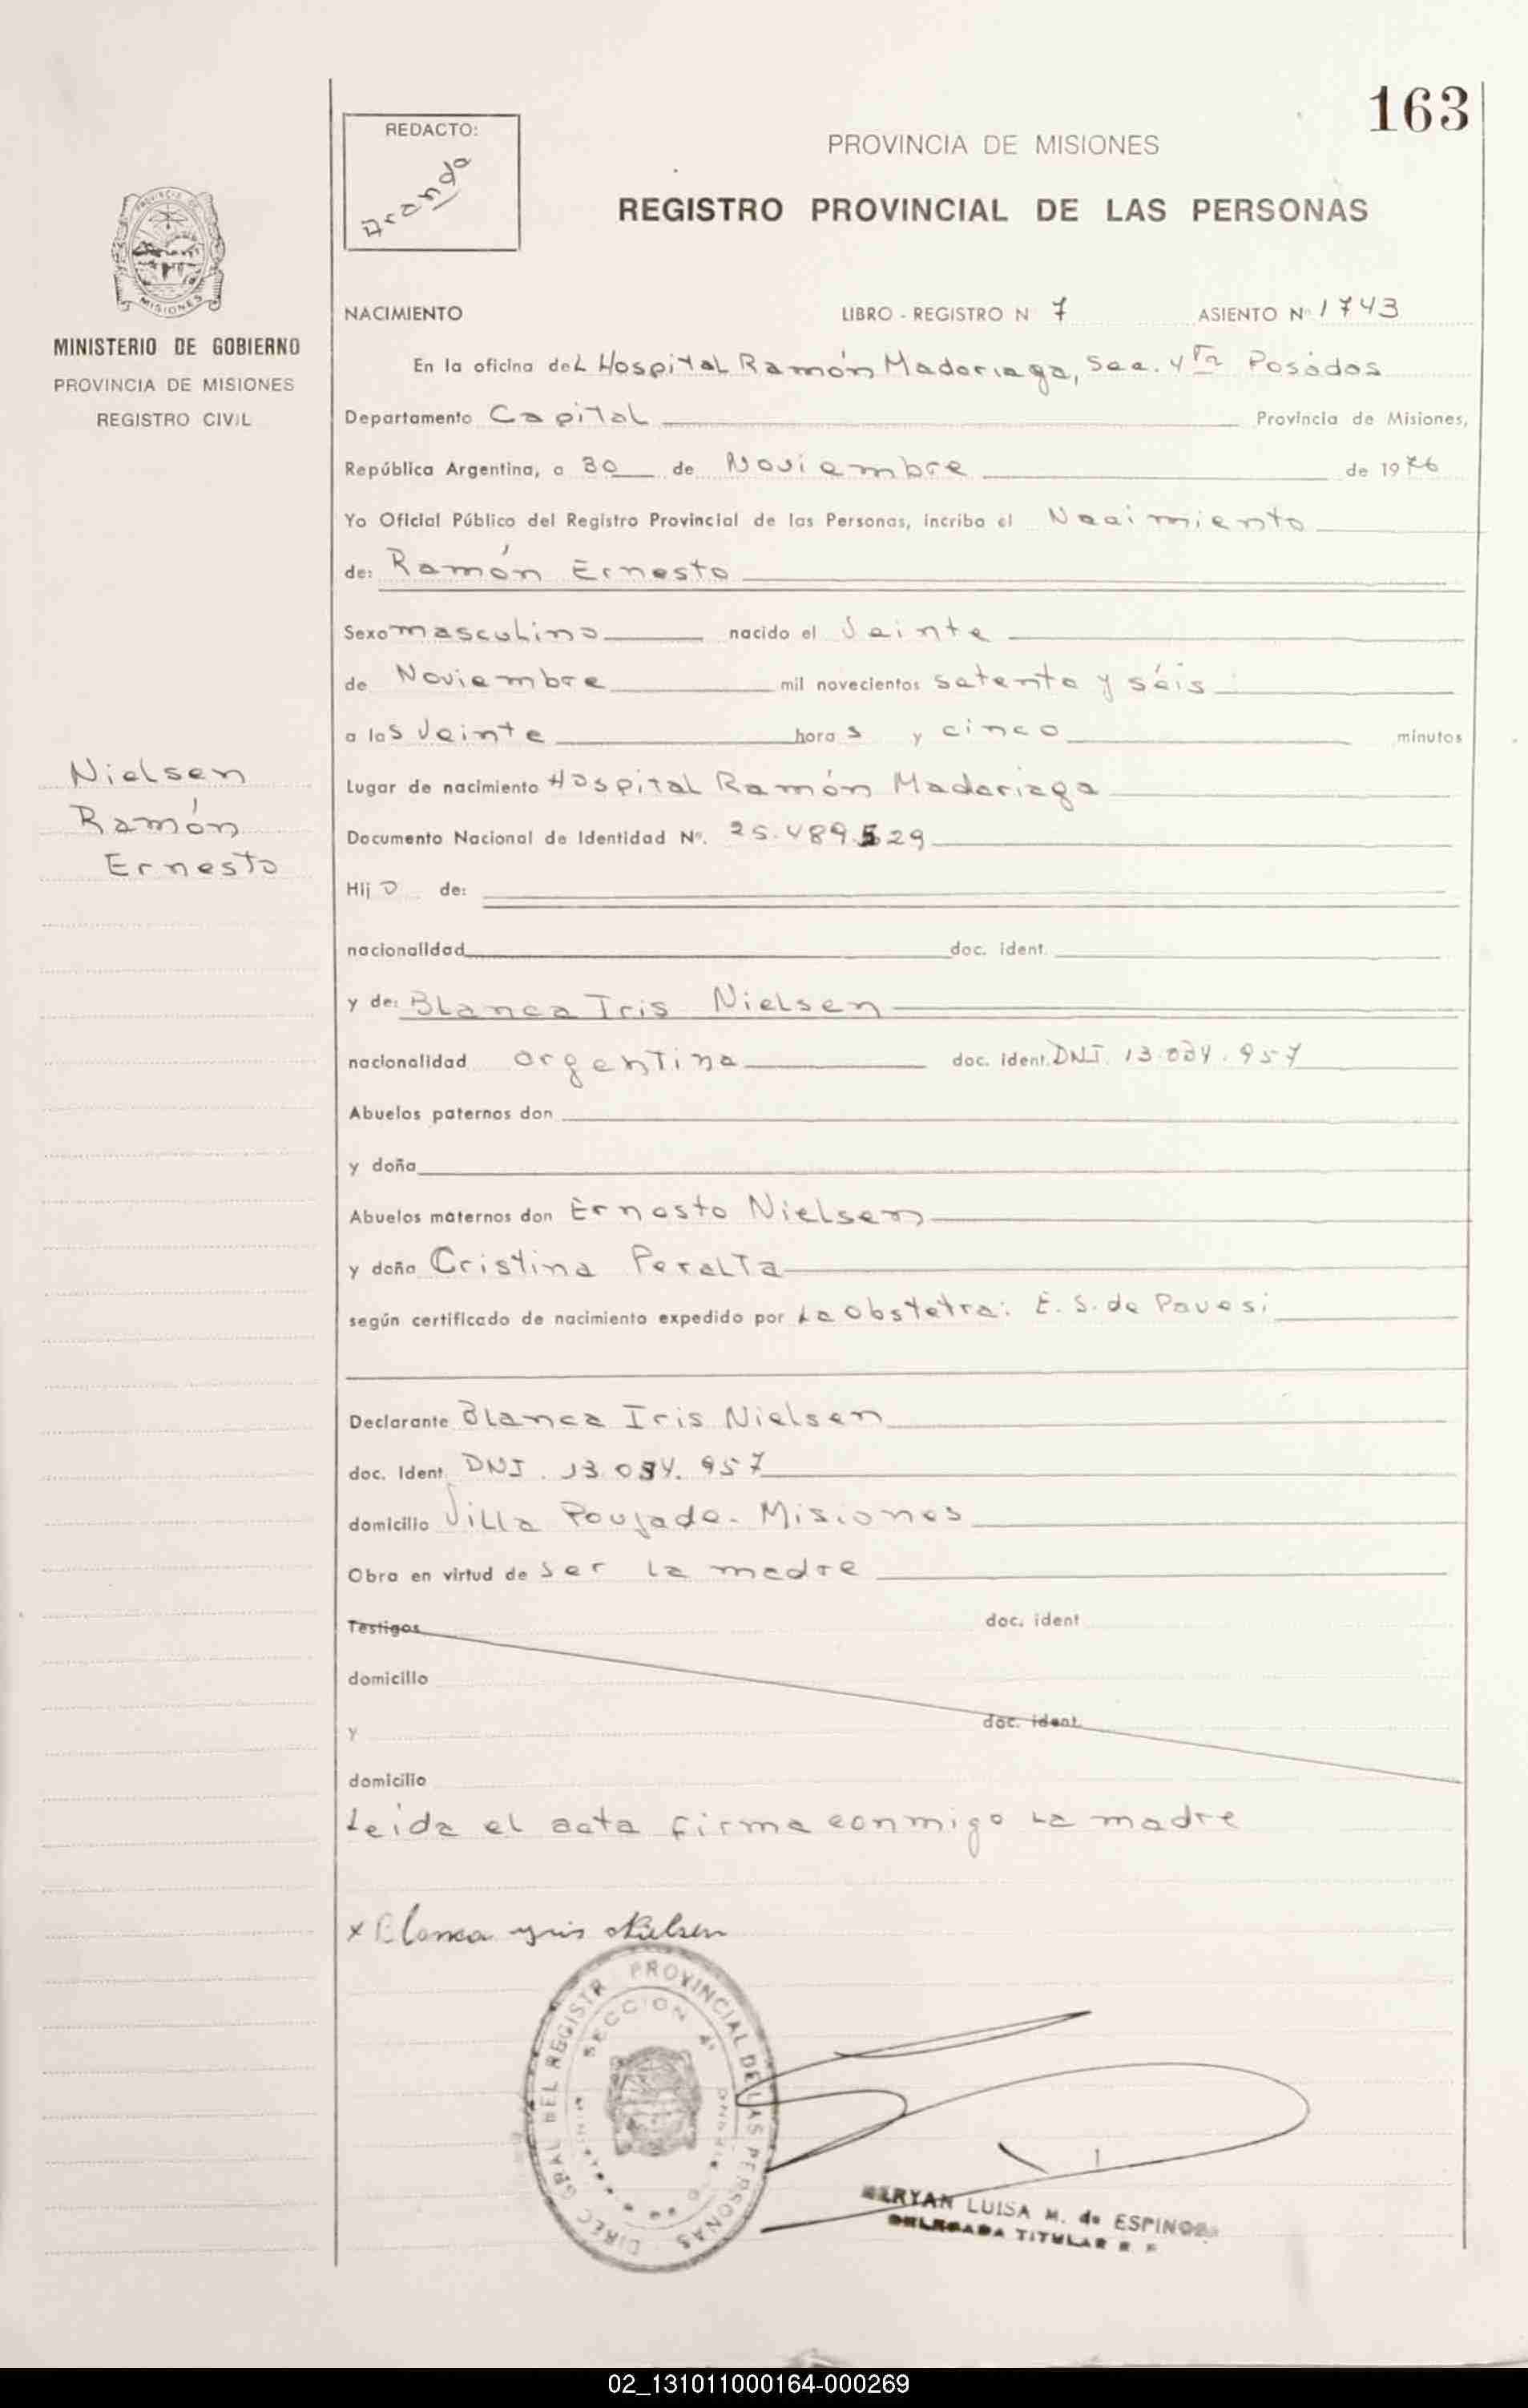 163
REDACTO:
Aranda
PROVINCIA DE MISIONES
REGISTRO PROVINCIAL DE LAS PERSONAS
MISIONES
MINISTERIO DE GOBIERNO
PROVINCIA DE MISIONES
REGISTRO CIVIL
NACIMIENTO LIBRO - REGISTRO N 7 ASIENTO Nº 1743
En la oficina del Hospital Ramón Madariaga, Sec. 4ta Posadas
Departamento Capital Provincia de Misiones,
República Argentina, a 30 de Noviembre de 1976
Yo Oficial Público del Registro Provincial de las Personas, incribo el Nacimiento
de: Ramón Ernesto
Sexo masculino nacido el Veinte
de Noviembre mil novecientos setenta y séis
a las Veinte horas y cinco minutos
Nielsen
Ramón
Ernesto
Lugar de nacimiento Hospital Ramón Madariaga
Documento Nacional de Identidad Nº. 25.489.529
Hijo de:
nacionalidad doc. ident.
y de: Blanca Iris Nielsen
nacionalidad argentina doc. ident. DNI. 13.034.957
Abuelos paternos don
y doña
Abuelos maternos don Ernesto Nielsen
y doña Cristina Peralta
según certificado de nacimiento expedido por La obstetra: E. S. de Pavesi
Declarante Blanca Iris Nielsen
doc. Ident. DNI. 13.034.957
domicilio Villa Poujade - Misiones
Obra en virtud de ser la madre
Testigos doc. ident
domicilio
y doc. ident.
domicilio
Leida el acta firma conmigo la madre
x Blanca yris Nielsen
DIREC GRAL DEL REGISTR PROVINCIAL DE LAS PERSONAS
SECCION 4ª
LUISA M. de ESPINOSA
DELEGADA TITULAR
02_131011000164-000269